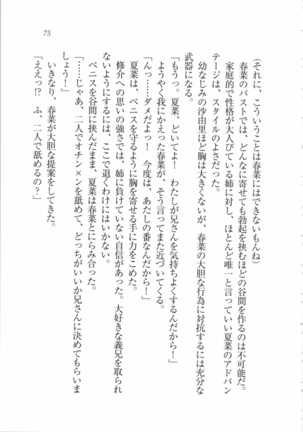 75
(それに、こういうことは春菜にはできないもんね)
春菜のバストでは、どんなに寄せても勃起を挟むほどの谷間を作るのは不可能だ。
家庭的で性格が大人びている姉に対し、ほとんど唯一と言っていい夏菜のアドバン
テージは、スタイルのよさだった。
幼なじみの沙由里ほど胸は大きくないが、春菜の大胆な行為に対抗するには充分な
武器になる。
「もうっ。夏菜、どいてよ！　わたしが兄さんを気持ちよくするんだから！」
ようやく我にかえった春菜が、そう言ってまた近づいてくる。
「んっ……ダメだよっ！　今度は、あたしの番なんだから！」
夏菜は、ペニスを守るように胸を寄せる手に力をこめた。
修介への思いの強さでは、姉に負けていない自信があった。大好きな義兄を取られ
ないようにするには、ここで退くわけにはいかない。
ペニスを谷間に挟んだまま、夏菜は春菜とにらみ合った。
「……じゃあ、二人でオチン×ンを舐めて、どっちがいいか兄さんに決めてもらいま
しょう！」
いきなり、春菜が大胆な提案をしてきた。
「ええっ!?　ふ、二人で舐めるの？」